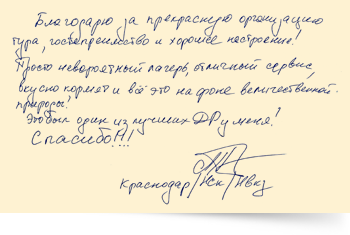 Благодарю за прекрасную организацию
тура, гостеприимство и хорошее настроение!
Просто невероятный лагерь, отличный сервис,
вкусно кормят и всё это на фоне величественной
природы!
Это был один из лучших ДР у меня!
Спасибо!!!
Краснодар/Нск/Нвкз